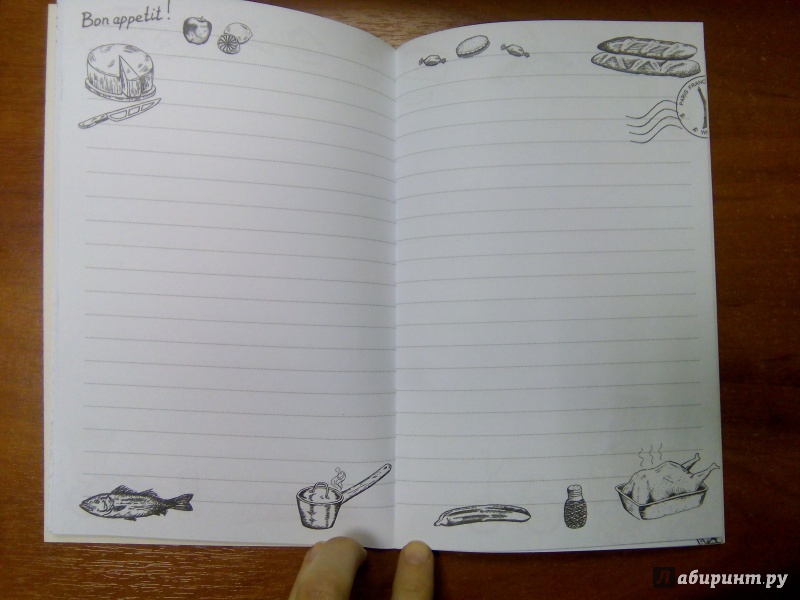 Bon appetit!
PARIS FRANC
Лабиринт.ру